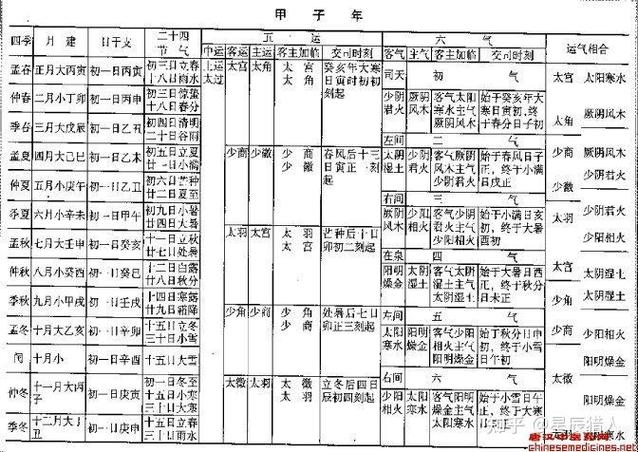 甲子年
四季 月建 日干支 二十四节气 五运 六气 运气相合
中运 客运 主运 客主加临 交司时刻
客气 主气 客主加临 交司时刻
孟春 正月大丙寅 初一日丙寅 初三日立春
十八日雨水
仲春 二月小丁卯 初一日丙申 初三日惊蛰
十八日春分
季春 三月大戊辰 初一日乙丑 初四日清明
二十日谷雨
孟夏 四月大己巳 初一日乙未 初五日立夏
廿一日小满
仲夏 五月小庚午 初一日乙丑 初六日芒种
廿二日夏至
季夏 六月小辛未 初一日甲午 初九日小暑
廿四日大暑
孟秋 七月大壬申 初一日癸亥 十一日立秋
廿七日处暑
仲秋 八月小癸酉 初一日癸巳 十二日白露
廿八日秋分
季秋 九月小甲戌 初一日壬戌 十四日寒露
廿九日霜降
孟冬 十月大乙亥 初一日辛卯 十五日立冬
三十日小雪
闰 十月小 初一日辛酉 十五日大雪
仲冬 十一月大丙子 初一日庚寅 初一日冬至
十五日小寒
三十日大寒
季冬 十二月大丁丑 初一日庚申 十五日立春
三十日雨水
土运太过
太宫 太角 太宫
太角 癸亥年大寒日寅时初初刻起
少商 少徵 少商
少徵 春风后十三日寅正一刻起
太羽 太宫 太羽
太宫 芒种后十日卯初二刻起
少角 少商 少角
少商 处暑后七日卯正三刻起
太徵 太羽 太徵
太羽 立冬后四日辰初四刻起
司天 初气
少阴君火 厥阴风木 客气太阳寒水主气厥阴风木 始于癸亥年大寒日寅初,终于春分日子初
左间 二气
太阴湿土 少阴君火 客气厥阴风木主气少阴君火 始于春风日子正,终于小满日戌正
右间 三气
厥阴风木 少阳相火 客气少阴君火主气少阳相火 始于小满日亥初,终于大暑酉初
在泉 四气
阳明燥金 太阴湿土 客气太阴湿土主气太阴湿土 始于大暑日酉正,终于秋分日未正
左间 五气
太阳寒水 阳明燥金 客气少阳相火主气阳明燥金 始于秋分日申初,终于小雪日午初
右间 六气
少阳相火 太阳寒水 客气阳明燥金主气太阳寒水 始于小雪日午正,终于大寒日
太宫 太阳寒水
太角 厥阴风木
少商 厥阴风木
少徵 少阴君火
太羽 少阴君火
少阳相火
太宫 太阴湿土
少角 太阴湿土
少商 少阳相火
阳明燥金
太徵 阳明燥金
太阳寒水
知乎 @星辰猎人
唐汉中医药网
chinesemedicines.net